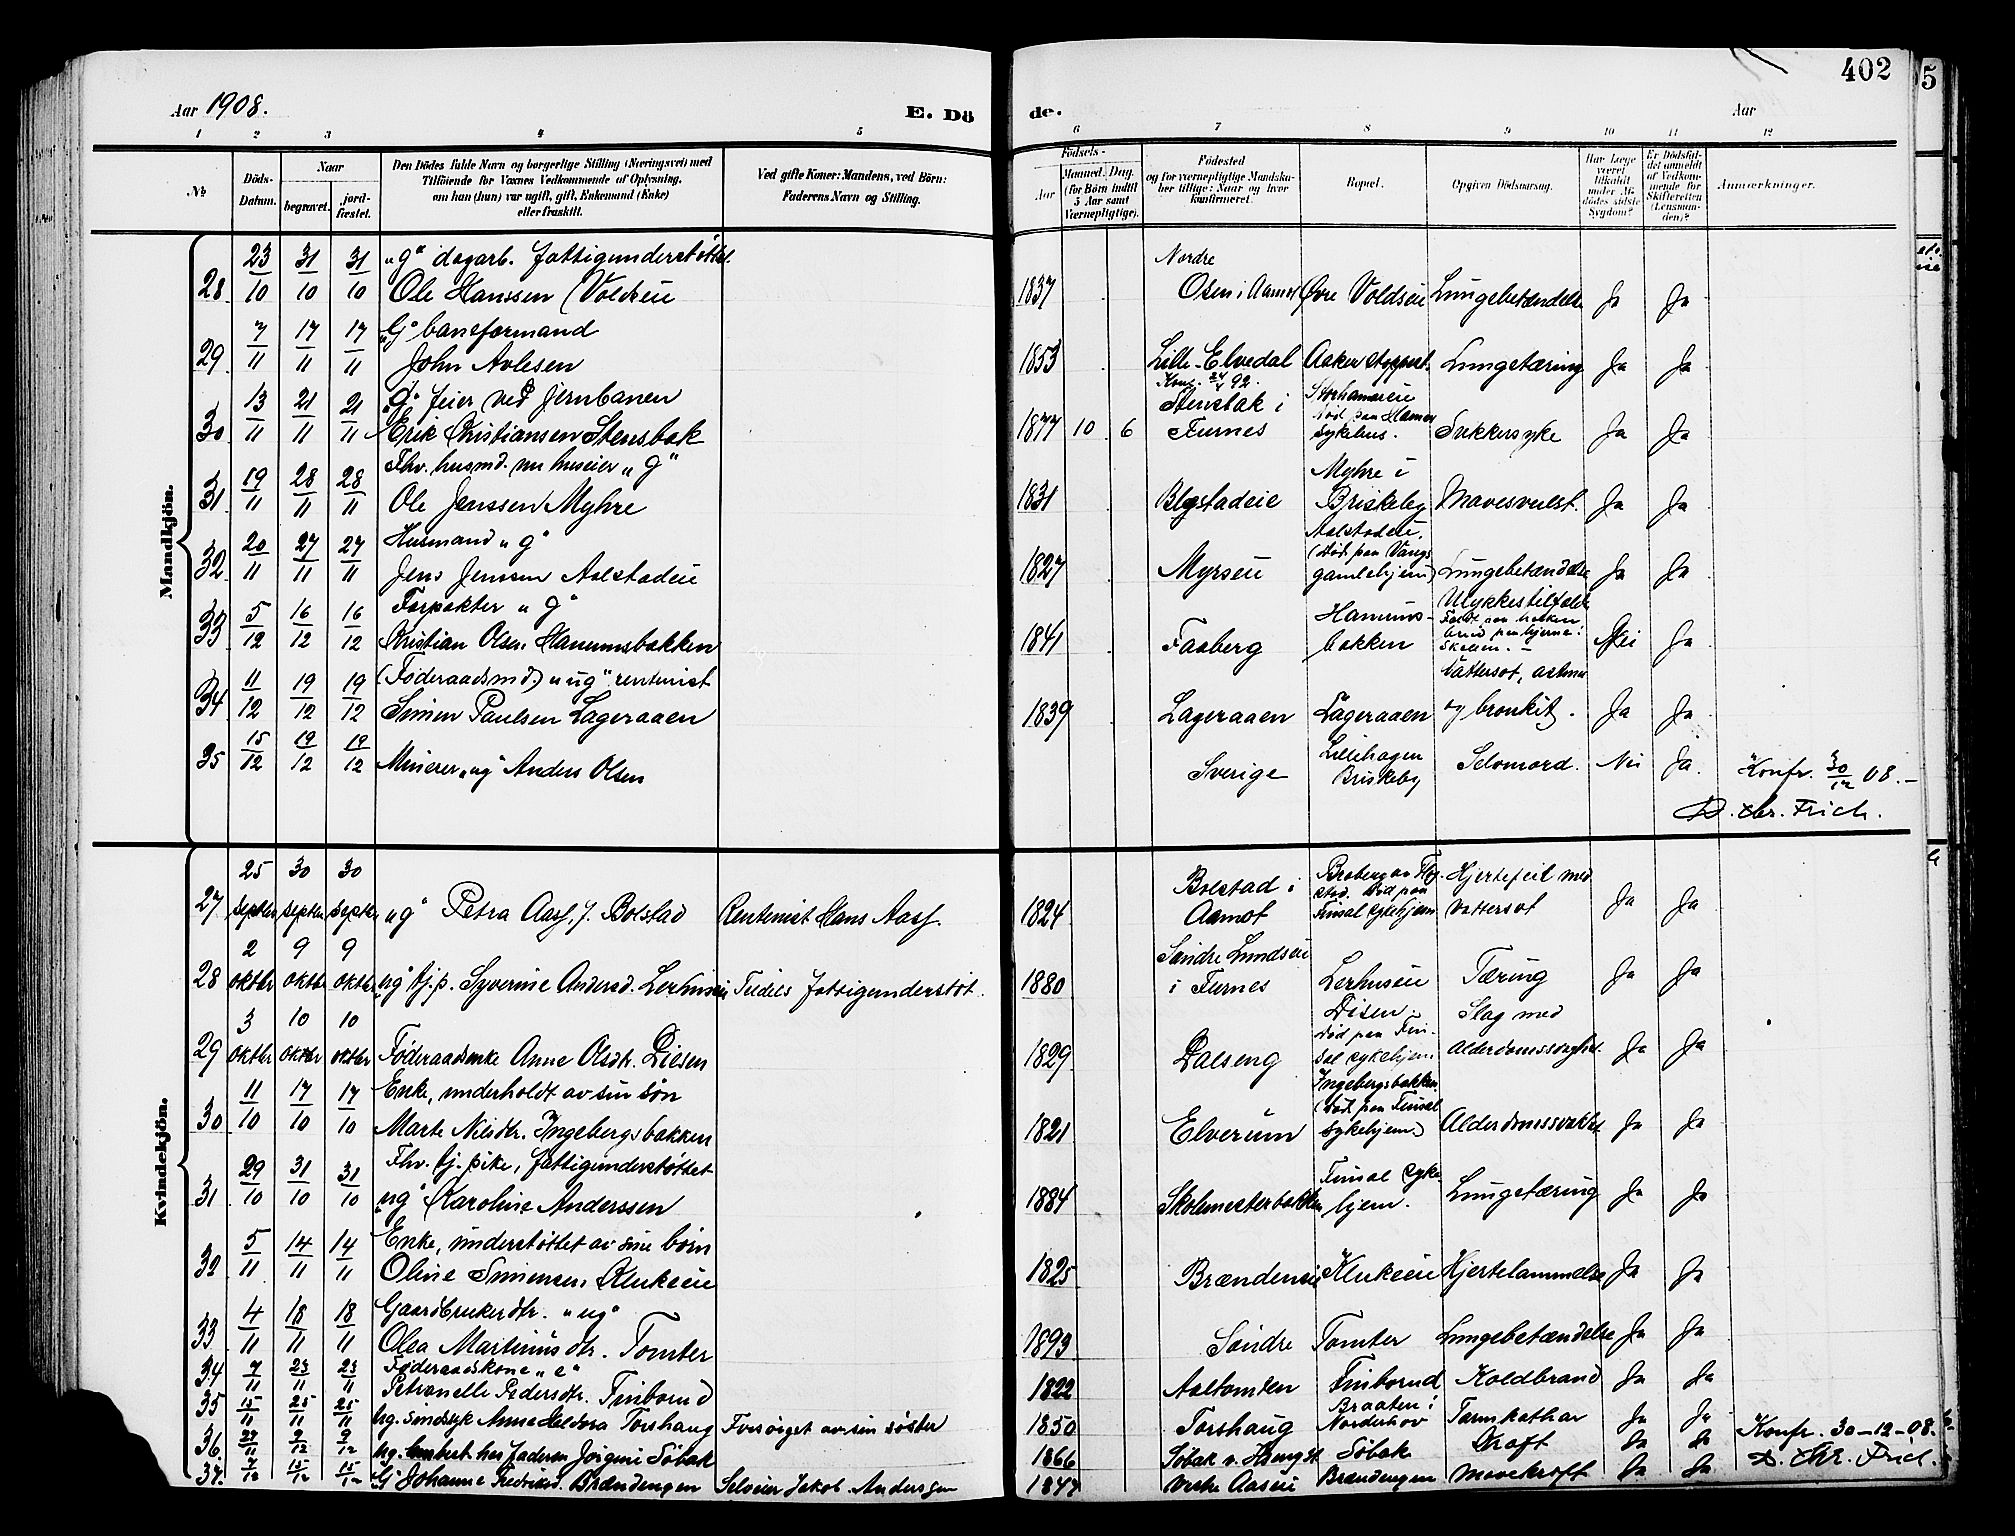 402
5
Aar 1908.
E. Dö
de.
Aar
1 2 3 4 5 6 7 8 9 10 11 12
№
Döds-Datum.
Naar
begravet.
jord-fæstet.
Den Dödes fulde Navn og borgerlige Stilling (Næringsvei) med
Tilföiende for Voxnes Vedkommende af Oplysning,
om han (hun) var ugift, gift, Enkemand (Enke)
eller fraskilt.
Ved gifte Koner: Mandens, ved Börn:
Faderens Navn og Stilling.
Födsels-
Aar
Maaned. Dag.
(for Börn indtil
5 Aar samt
Værnepligtige).
Födested
og for værnepligtige Mandska-
ber tillige: Naar og hvor
konfirmeret.
Bopæl.
Opgiven Dödsaarsag.
Har Læge
været
tilkaldt
under Af-
dödes sidste
Sygdom?
Er Dödsfal-
det anmeldt
af Vedkom-
mende for
Skifteretten
(Lensman-
den)?
Anmærkninger.
Mandkjön.
28 23/10 31/10 31/10 "g" dagarb. fattigunderstøttet.
Ole Hanssen Voldseie 1837 Nordre Osen i Aamot Øvre Voldseie Lungebetændelse Ja Ja
29 7/11 17/11 17/11 "G" baneformand
John Avlesen 1853 Lille-Elvedal Aaker stoppest. Lungetæring Ja Ja
30 13/11 21/11 21/11 "g" feier ved jernbanen
Erik Kristiansen Stensbak 1877 10 6 Konf. 92. Stensbak i Furnes Storhamareie død paa Hamar sykehus. Sukkersyke Ja Ja
31 19/11 28/11 28/11 Fhv. husmd. nu huseier "g"
Ole Jenssen Myhre 1831 Blystadeie Myhre i Briskeby Mavesvulst. Ja Ja
32 20/11 27/11 27/11 Husmand "g"
Jens Jenssen Aalstadeie 1827 Myrseie Aalstadeie. (død paa Vangs gamlehjem) Lungebetændelse Ja Ja
33 5/12 16/12 16/12 Forpakter "g"
Kristian Olsen Hanumsbakken 1841 Faaberg Hanumsbakken Ulykkestilfælde Nei Ja
34 11/12 19/12 19/12 (Føderaadsmd.) "ug" rentenist
Simen Paulsen Lageraaen 1839 Lageraaen Lageraaen Vattersot, astma og bronkit. Ja Ja
35 15/12 19/12 19/12 Minerer "ug" Anders Olsen Sverige Lillehagen Briskeby Selvmord. Nei Ja. Konfr. 30/12 08.-
D. Chr. Frich.
Kvindekjön.
27 25 septbr 30 septbr 30 septbr "ug" Petra Aasf. f. Bolstad Rentenist Hans Aasf. 1824 Bolstad i Aamot Broberg død paa Finsal sykehjem Hjertefeil med vattersot Ja Ja
28 2 oktbr 9 oktbr 9 oktbr "ug" tj.p. Syverine Andersd. Lerhuseie Tildels fattigunderstøt. 1880 Søndre Lundseie i Furnes Lerhuseie Tæring Ja Ja
29 3 oktbr 10 oktbr 10 oktbr Føderaadsenke Anne Olsdtr. Disen 1829 Dalseng Disen. død paa Finsal sykehjem Slag med alderdomssvaghet. Ja Ja
30 11/10 17/10 17/10 Enke, underholdt av sin søn
Marte Nilsdtr. Ingebergsbakken 1821 Elverum Ingebergsbakken. (død paa Finsal sykehjem) Alderdomssvakhet Ja Ja
31 29/10 31/10 31/10 Fhv. tj. pike, fattigunderstøttet
"ug" Karoline Anderssen 1884 Skolmesterbakken Finsal sykehjem. Lungetæring Ja Ja
32 5/11 14/11 14/11 Enke, understøttet av sine børn
Oline Simensen Klukeeie 1825 Brændeneie Klukeeie Hjertelammelse Ja Ja
33 4/11 18/11 18/11 Gaardbrukerdtr. "ug"
Olea Martinusdtr. Tomter 1893 Søndre Tomter Lungebetændelse Ja Ja
34 7/11 23/11 23/11 Føderaadskone "e"
Petronelle Pedersdtr. Finborud 1822 Aaltomten Finborud Koldbrand Ja Ja
35 15/11 25/11 25/11 Ug. sindssyk Anne Torshaug Forsørget av sin søster 1850 Torshaug Braaten i Norderhov Tarmkathar Ja Ja
36. 27/11 9/12 9/12 ug. hos faderen Jørgine Søbak 1866 Søbak Søbak Kræft Ja Ja Konfr. 30-12-08.
37. 7/12 15/12 15/12 "G" Johanne Fredriksd. Brændengen Selveier Jakob Anderssen 1847 Vestre Aaseie Brændengen Mavekræft Ja Ja D. Chr. Frich.